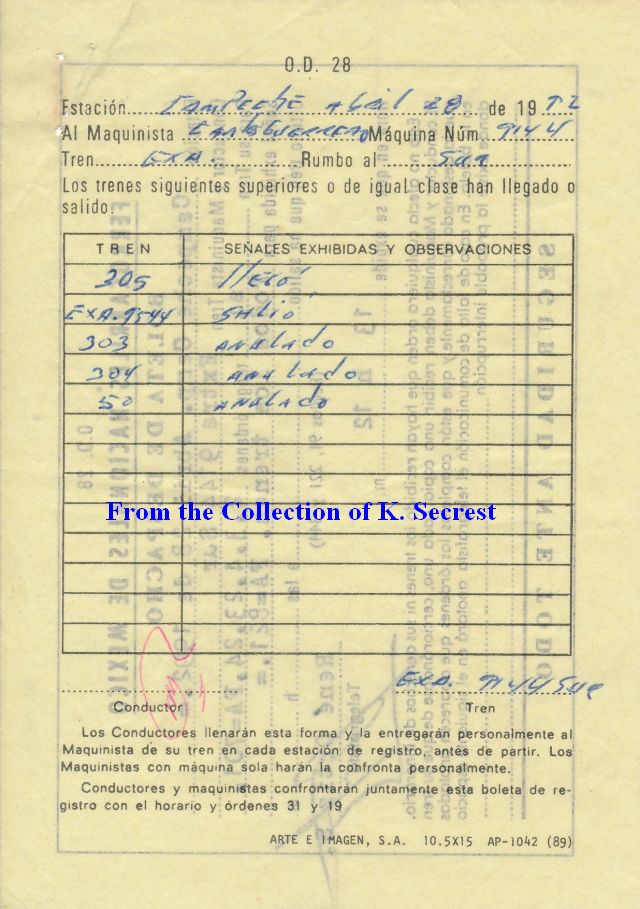 O.D. 28
Estación Campeche Abril 28 de 1992
Al Maquinista Máquina Núm. 9144
Tren EXA. Rumbo al Sur
Los trenes siguientes superiores o de igual clase han llegado o
salido.
TREN SEÑALES EXHIBIDAS Y OBSERVACIONES
205 llegó
EXA. 9544 SALió
303 anulado
304 anulado
50 anulado
From the Collection of K. Secrest
EXA. 9144 Sur
Conductor Tren
Los Conductores llenarán esta forma y la entregarán personalmente al
Maquinista de su tren en cada estación de registro, antes de partir. Los
Maquinistas con máquina sola harán la confronta personalmente.
Conductores y maquinistas confrontarán juntamente esta boleta de re-
gistro con el horario y órdenes 31 y 19
ARTE E IMAGEN, S.A. 10.5X15 AP-1042 (89)